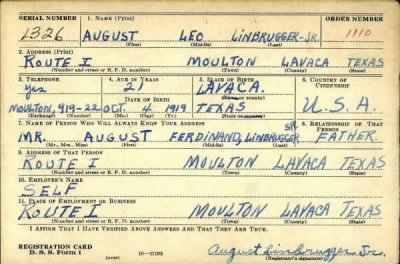 SERIAL NUMBER 1. Name (Print) ORDER NUMBER
1326 AUGUST LEO LINBRUGGER-JR. 1910
(First) (Middle) (Last)
2. Address (Print)
ROUTE I MOULTON LAVACA TEXAS
(Number and street or R. F. D. number) (Town) (County) (State)
3. Telephone 4. Age in Years 5. Place of Birth 6. Country of Citizenship
yes 21 LAVACA.
(Town or county)
Date of Birth
MOULTON, 919-22 OCT. 4 1919 TEXAS U.S.A.
(Exchange) (Number) (Mo.) (Day) (Yr.) (State or country)
7. Name of Person Who Will Always Know Your Address 8. Relationship of That Person
MR. AUGUST FERDINAND, LINBRUGGER SR. FATHER.
(Mr., Mrs., Miss) (First) (Middle) (Last)
9. Address of That Person
ROUTE I MOULTON LAVACA TEXAS
(Number and street or R. F. D. number) (Town) (County) (State)
10. Employer's Name
SELF
11. Place of Employment or Business
ROUTE I MOULTON LAVACA TEXAS
(Number and street or R. F. D. number) (Town) (County) (State)
I Affirm That I Have Verified Above Answers and That They Are True.
REGISTRATION CARD
D. S. S. Form 1 (over) August Linbrugger Jr.
(Registrant's signature)